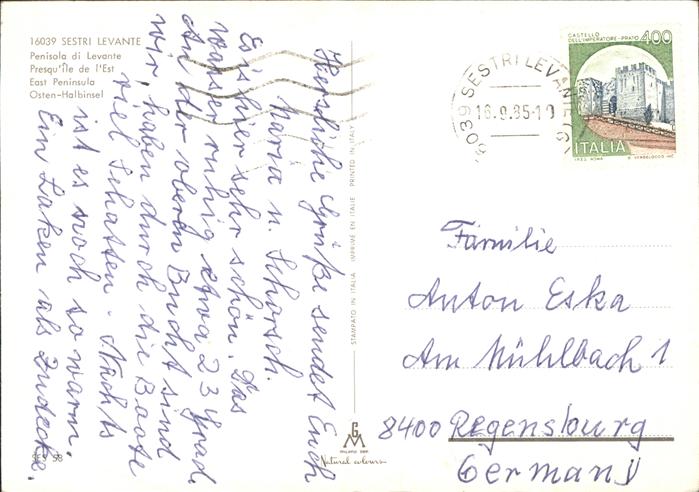 16039 SESTRI LEVANTE
Penisola di Levante
Presqu'Île de l'Est
East Peninsula
Osten-Halbinsel
Herzliche Grüße sendet Euch
Maria u. Schorsch.
Es ist hier sehr schön. Das
Wasser ruhig etwa 23 Grad.
An der oberen Bucht sind
wir, haben durch die Boote
viel Schatten. Nachts
ist es noch so warm.
Ein Laken als Zudecke.
SES 58
STAMPATO IN ITALIA IMPRIMÉ EN ITALIE PRINTED IN ITALY
GM
Natural colours
16039 SESTRI LEVANTE
16.9.85-19
CASTELLO
DELL'IMPERATORE-PRATO 400
ITALIA
Familie
Anton Eska
Am Mühlbach 1
8400 Regensburg
Germany